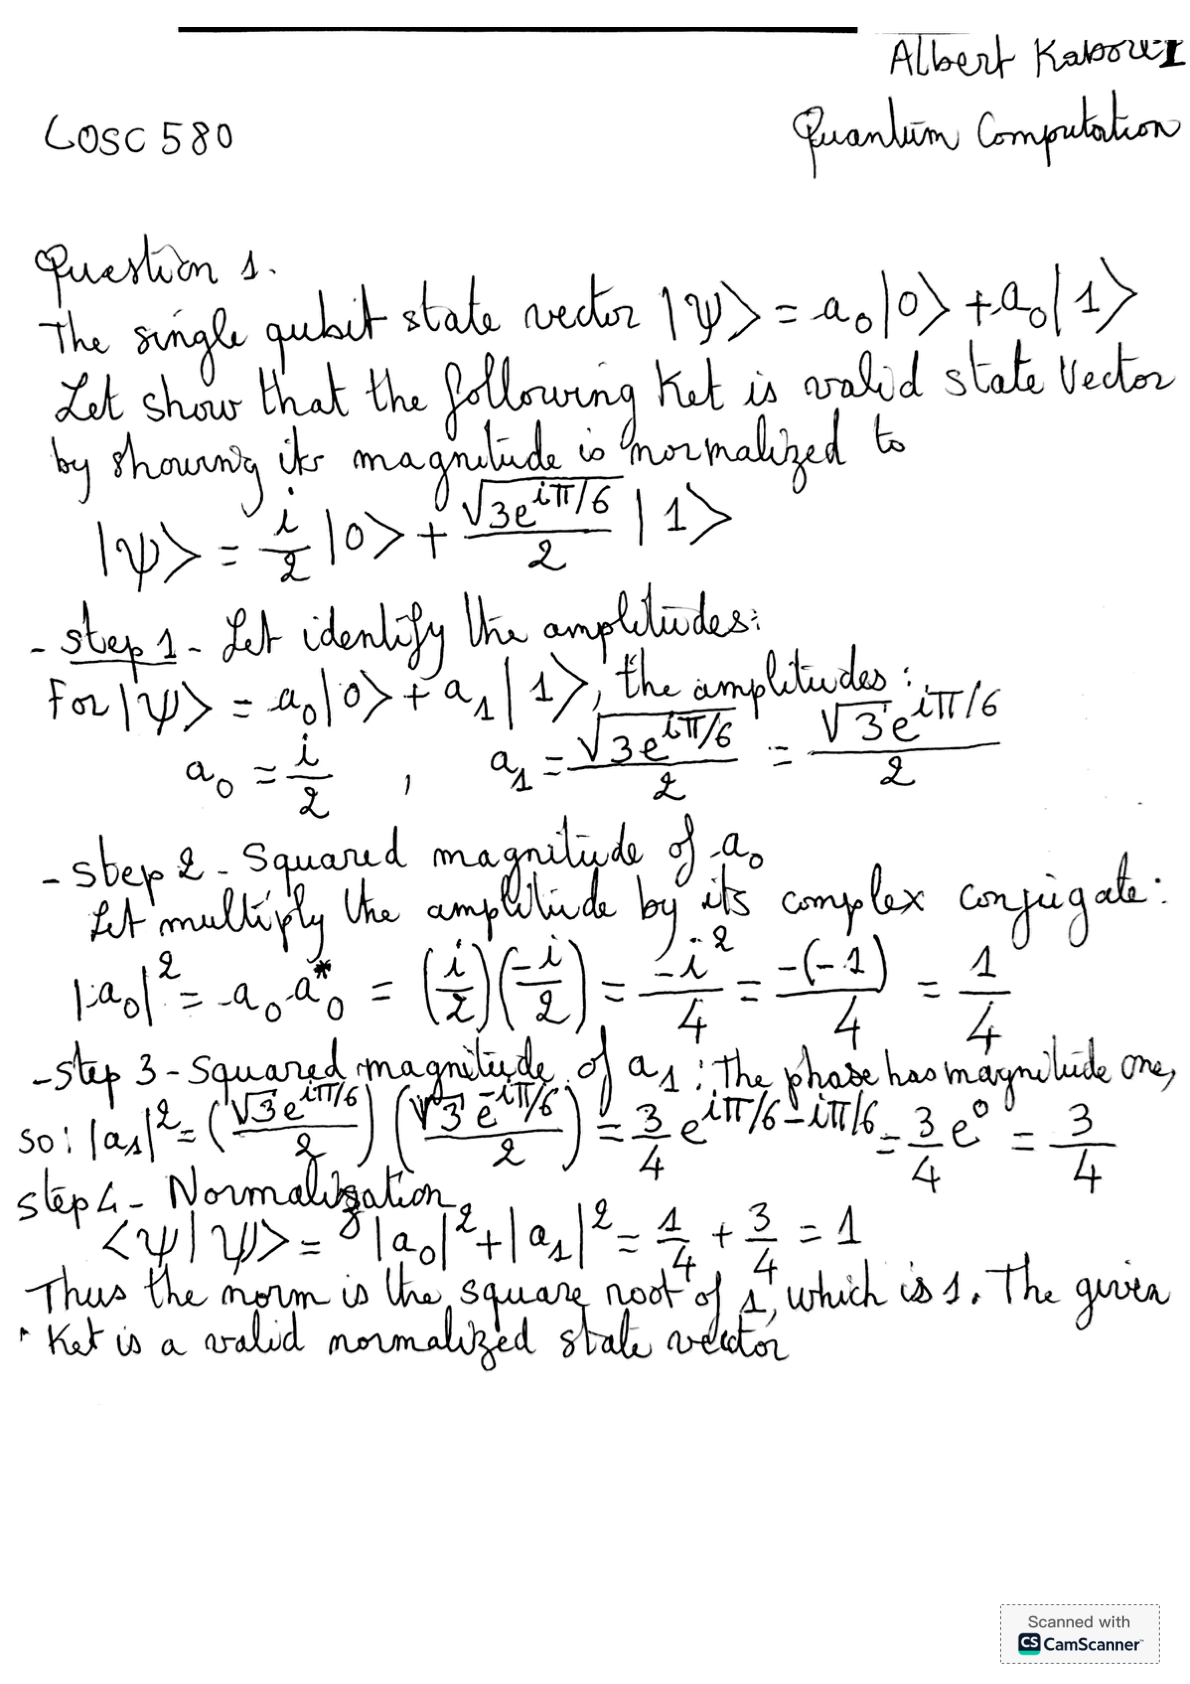 Albert Kabore
COSC 580
Quantum Computation
Question 1.
The single qubit state vector |ψ> = a₀|0> + a₀|1>
Let show that the following Ket is valid state Vector
by showing its magnitude is normalized to
|ψ> = i/2 |0> + √(3e^(iπ/6))/2 |1>
- step 1 - Let identify the amplitudes:
For |ψ> = a₀|0> + a₁|1>, the amplitudes:
a₀ = i/2 , a₁ = √(3e^(iπ/6))/2 = √3 e^(iπ/6)/2
- step 2 - Squared magnitude of a₀
Let multiply the amplitude by its complex conjugate:
|a₀|² = a₀ a*₀ = (i/2)(-i/2) = -i²/4 = -(-1)/4 = 1/4
- step 3 - Squared magnitude of a₁: The phase has magnitude one,
so: |a₁|² = (√3 e^(iπ/6)/2)(√3 e^(-iπ/6)/2) = 3/4 e^(iπ/6 - iπ/6) = 3/4 e⁰ = 3/4
step 4 - Normalization
<ψ|ψ> = |a₀|² + |a₁|² = 1/4 + 3/4 = 1
Thus the norm is the square root of 1, which is 1. The given
Ket is a valid normalized state vector
Scanned with
CS CamScanner